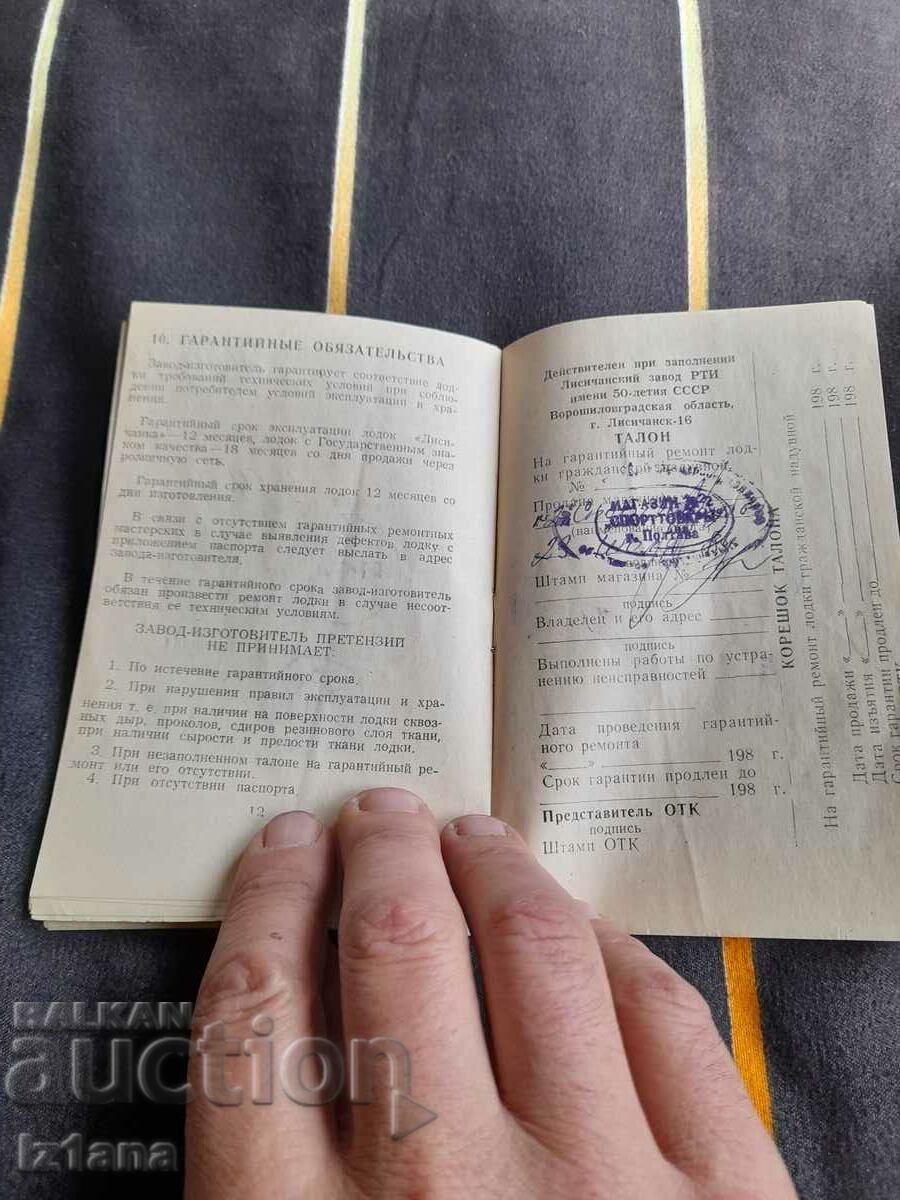 10. ГАРАНТИЙНЫЕ ОБЯЗАТЕЛЬСТВА
Завод-изготовитель гарантирует соответствие лод-
ки требований технических условий при соблю-
дении потребителем условий эксплуатации и хра-
нения.
Гарантийный срок эксплуатации лодок «Лиси-
чанка»—12 месяцев, лодок с Государственным зна-
ком качества—18 месяцев со дня продажи через
розничную сеть.
Гарантийный срок хранения лодок 12 месяцев со
дня изготовления.
В связи с отсутствием гарантийных ремонтных
мастерских в случае выявления дефектов лодку с
приложением паспорта следует выслать в адрес
завода-изготовителя.
В течение гарантийного срока завод-изготовитель
обязан произвести ремонт лодки в случае несоот-
ветствия ее техническим условиям.
ЗАВОД-ИЗГОТОВИТЕЛЬ ПРЕТЕНЗИЙ
НЕ ПРИНИМАЕТ:
1. По истечение гарантийного срока.
2. При нарушении правил эксплуатации и хра-
нения т. е. при наличии на поверхности лодки сквоз-
ных дыр, проколов, сдиров резинового слоя ткани,
при наличии сырости и прелости ткани лодки.
3. При незаполненном талоне на гарантийный ре-
монт или его отсутствии.
4. При отсутствии паспорта
12
Действителен при заполнении
Лисичанский завод РТИ
имени 50-летия СССР
Ворошиловградская область,
г. Лисичанск-16
ТАЛОН
На гарантийный ремонт лод-
ки гражданской надувной
№
Продана
МАГАЗИН
СПОРТТОВАРЫ
г. Полтава
Штамп магазина №
подпись
Владелец и его адрес
подпись
Выполнены работы по устра-
нению неисправностей
Дата проведения гарантий-
ного ремонта
«____» 198 г.
Срок гарантии продлен до
198 г.
Представитель ОТК
подпись
Штамп ОТК
КОРЕШОК ТАЛОНА
На гарантийный ремонт лодки гражданской надувной
Дата продажи «____» 198 г.
Дата изъятия «____» 198 г.
Срок гарантии продлен до 198 г.
BALKAN
auction
iz1ana